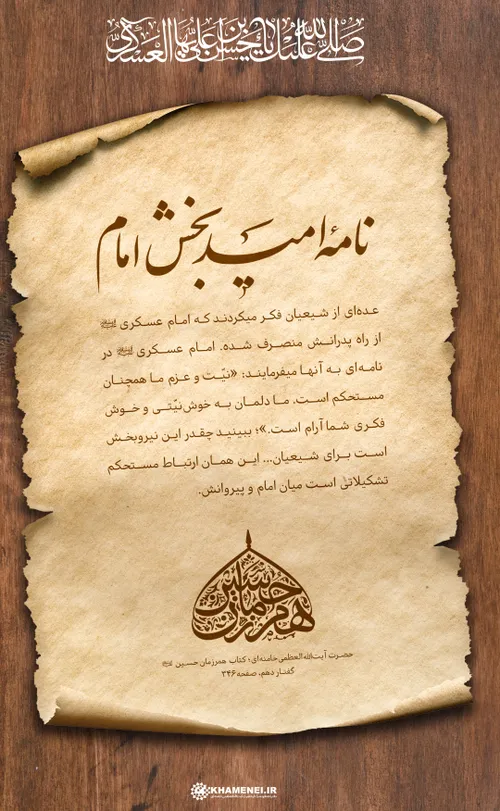 صلی الله علیک یا حسن بن علی ایها العسکری
نامهٔ امیدبخش امام
عده‌ای از شیعیان فکر میکردند که امام عسکری
از راه پدرانش منصرف شده. امام عسکری در
نامه‌ای به آنها میفرمایند: «نیّت و عزم ما همچنان
مستحکم است. ما دلمان به خوش‌نیّتی و خوش
فکری شما آرام است.»؛ ببینید چقدر این نیروبخش
است برای شیعیان... این همان ارتباط مستحکم
تشکیلاتی است میان امام و پیروانش.
همرزمان حسین
حضرت آیت‌الله‌العظمی خامنه‌ای؛ کتاب همرزمان حسین
گفتار دهم، صفحه ۳۴۶
KHAMENEI.IR